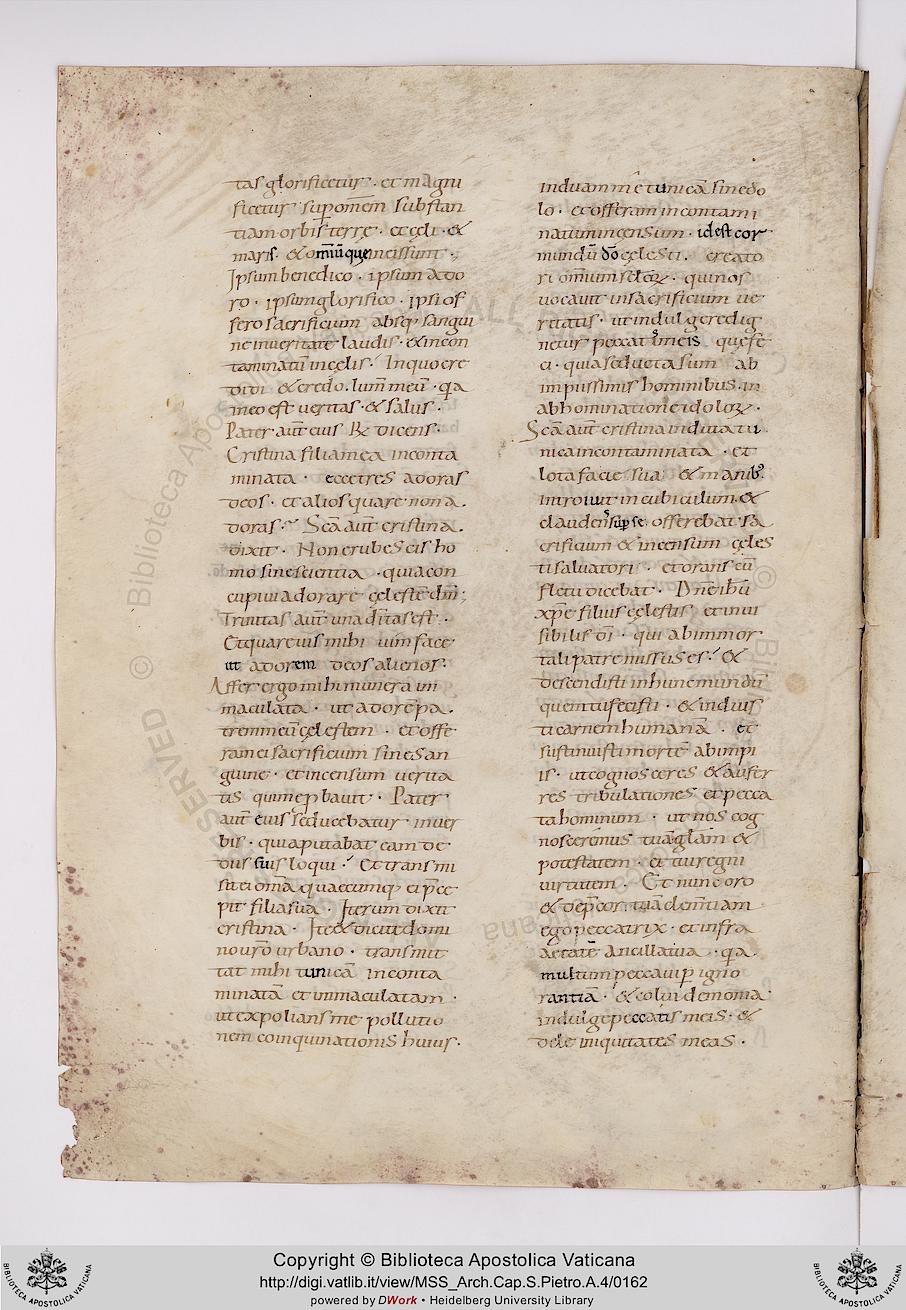 tas glorificetur · et magni
ficetur sup om̄em substan
tiam orbis terrę · et cęli · &
maris · & om̄iū que in eis sunt ·
Ipsum benedico · ipsum ado
ro · ipsum glorifico · ipsi of
fero sacrificium absq; sangui
ne in veritate laudis · & incon
taminatū in cęlis · In quo cre
didi & credo · lum̄ meū · q̄a
meo est veritas · & salus ·
Pater aut̄ eius R̄ dicens ·
Cristina filia mea inconta
minata · ecce tres adoras
deos · et alios quare non a
doras · Sc̄a aut̄ cristina
dixit · Non erubescis ho
mo sine scientia · quia con
cupiui adorare cęlestē dn̄m ;
Trinitas aut̄ una dītas est ·
Et quare uis mihi uim face
ut adorem deos alienos ·
Affer ergo mihi munera im
maculata · ut adorē pa
trem meū cęlestem · et offe
ram ei sacrificium sine san
guine · et incensum uerita
tis qui me p̄bauit · Pater
aut̄ eius seducebatur in uer
bis · quia putabat eam de
diis suis loqui · Et transmi
sit ei om̄a quaecumq; ei p̄ce
pit filia sua · Iterum dixit
cristina · Ite & dicite domi
no uro urbano · transmit
tat mihi tunicā inconta
minatā et immaculatam ·
ut expolians me pollutio
nem coinquinationis huius ·
induam me tunicā sine do
lo · et offeram incontami
natum incensum · id est cor
mundū dō cęlesti · creato
ri omīum sclōꝝ · qui nos
uocauit in sacrificium ue
ritatis · ut indulgere dig
netur peccatis meis que fe
ci · quia seducta sum ab
impiissimis hominibus · in
abhominatione idoloꝝ ·
Sc̄a aut̄ cristina induta tu
nica incontaminata · et
lota facie sua & manib;
introiuit in cubiculum · &
claudens sup se offerebat sa
crificium & incensum cęles
ti saluatori · et orans cū
fletu dicebat · Dn̄e ihū
xpe filius cęlestis et inui
sibilis dī · qui ab immor
tali patre missus es · &
descendisti in hunc mundū
quem tu fecisti · & induis
ti carnem humanā · et
sustinuisti mortē ab impi
is · ut cognosceres & aufer
res tribulationes et pecca
ta hominum · ut nos cog
noscerēmus tuā glām &
potestatem · et tui regni
uirtutem · Et nunc oro
& dep̄cor tuā clem̄tiam
ego peccatrix · et infra
aetatē ancilla tua · q̄a
multum peccaui p igno
rantiā · & colui demonia
indulge peccatis meis · &
dele iniquitates meas ·
Copyright © Biblioteca Apostolica Vaticana
http://digi.vatlib.it/view/MSS_Arch.Cap.S.Pietro.A.4/0162
powered by DWork • Heidelberg University Library